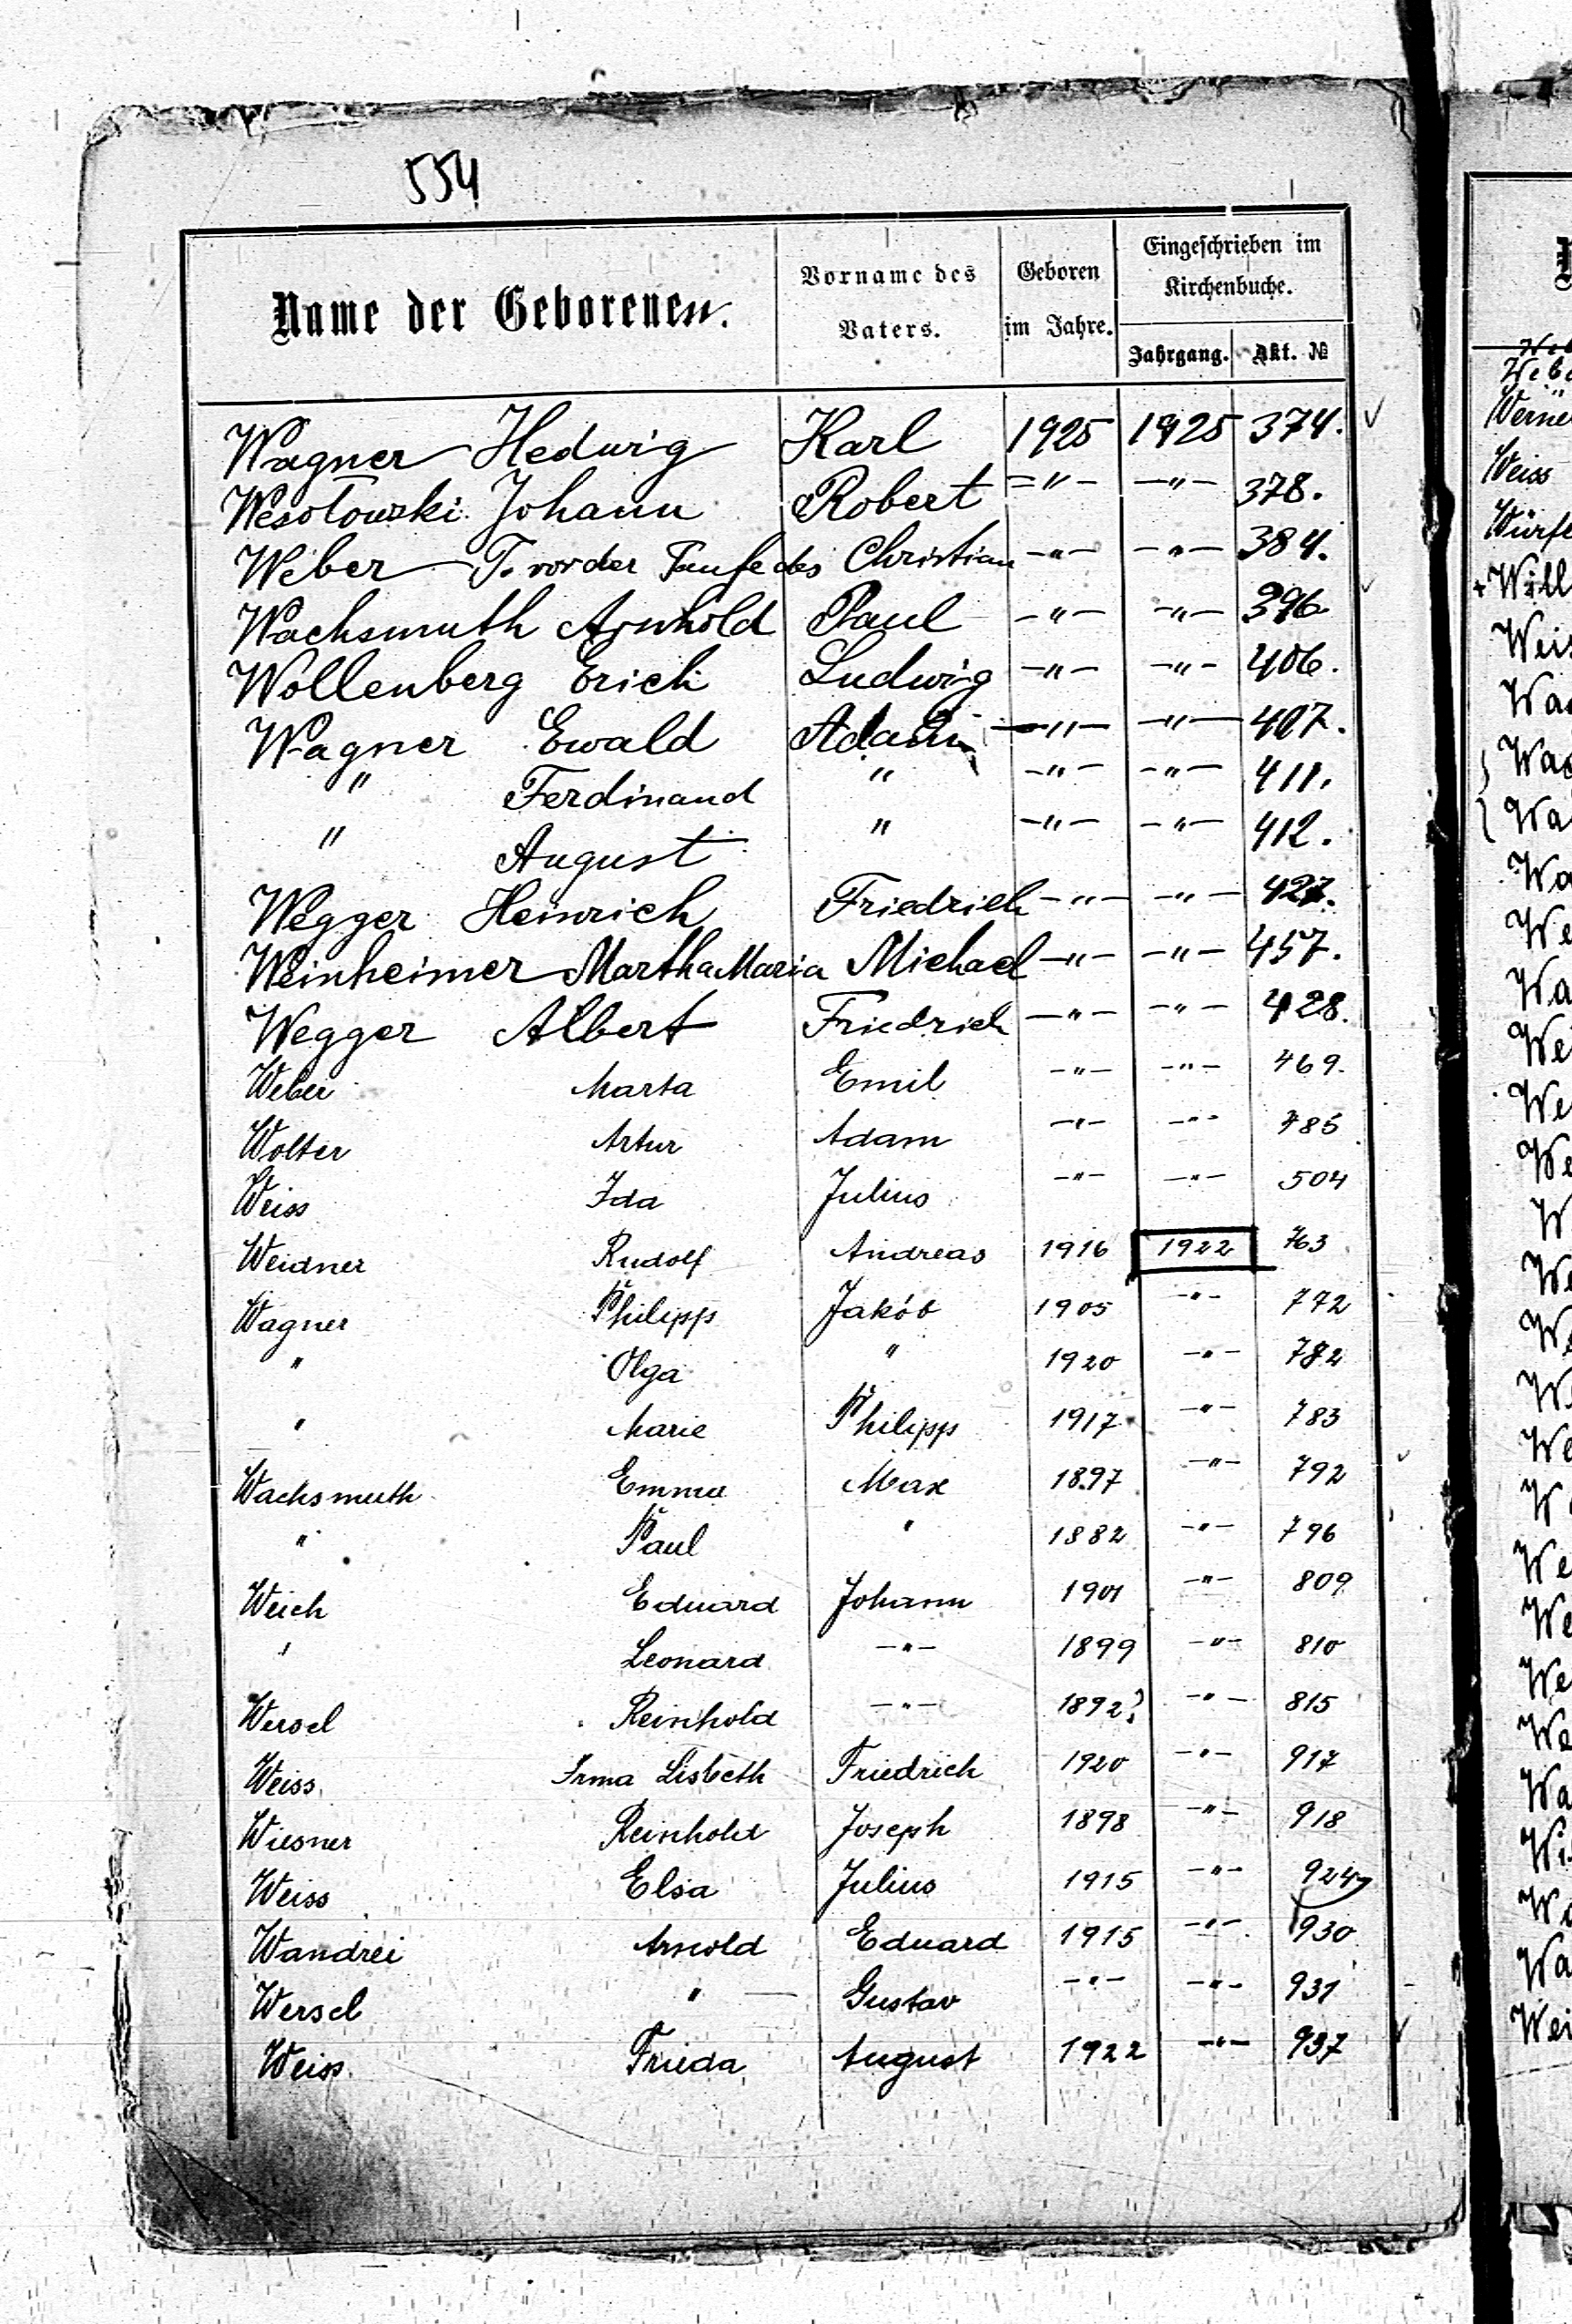 554
Name der Geborenen. Vorname des Vaters. Geboren im Jahre. Eingeschrieben im Kirchenbuche. Jahrgang. Akt. №
Wagner Hedwig Karl 1925 1925 374.
Wesołowski Johann Robert -"- -"- 378.
Weber T. vor der Taufe des Christian -"- -"- 384.
Wachsmuth Arnhold Paul -"- -"- 396
Wollenberg Erich Ludwig -"- -"- 406.
Wagner Ewald Adam -"- -"- 407.
" Ferdinand " -"- -"- 411.
" August " -"- -"- 412.
Wegger Heinrich Friedrich -"- -"- 427.
Weinheimer Martha Maria Michael -"- -"- 457.
Wegger Albert Friedrich -"- -"- 428.
Weber Marta Emil -"- -"- 469.
Wolter Artur Adam -"- -"- 485
Weiss Ida Julius -"- -"- 504
Weidner Rudolf Andreas 1916 1922 763
Wagner Philipp Jakób 1905 -"- 772
" Olga " 1920 -"- 782
" Marie Philipp 1917 -"- 783
Wachsmuth Emma Max 1897 -"- 792
" Paul " 1882 -"- 796
Weich Eduard Johann 1901 -"- 809
" Leonard -"- 1899 -"- 810
Wersel Reinhold -"- 1892? -"- 815
Weiss Irma Lisbeth Friedrich 1920 -"- 917
Wiesner Reinhold Joseph 1898 -"- 918
Weiss Elsa Julius 1915 -"- 924
Wandrei Arnold Eduard 1915 -"- 930
Wersel " Gustav -"- -"- 931
Weiss Frieda August 1922 -"- 937
Weiss